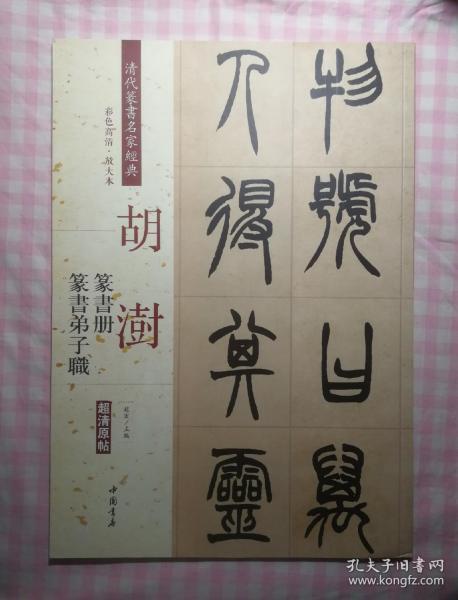 清代篆書名家經典
彩色高清·放大本
胡澍
篆書册
篆書弟子職
超清原帖
中國書店
物號曰萬
人得其靈
孔夫子旧书网
www.kongfz.com